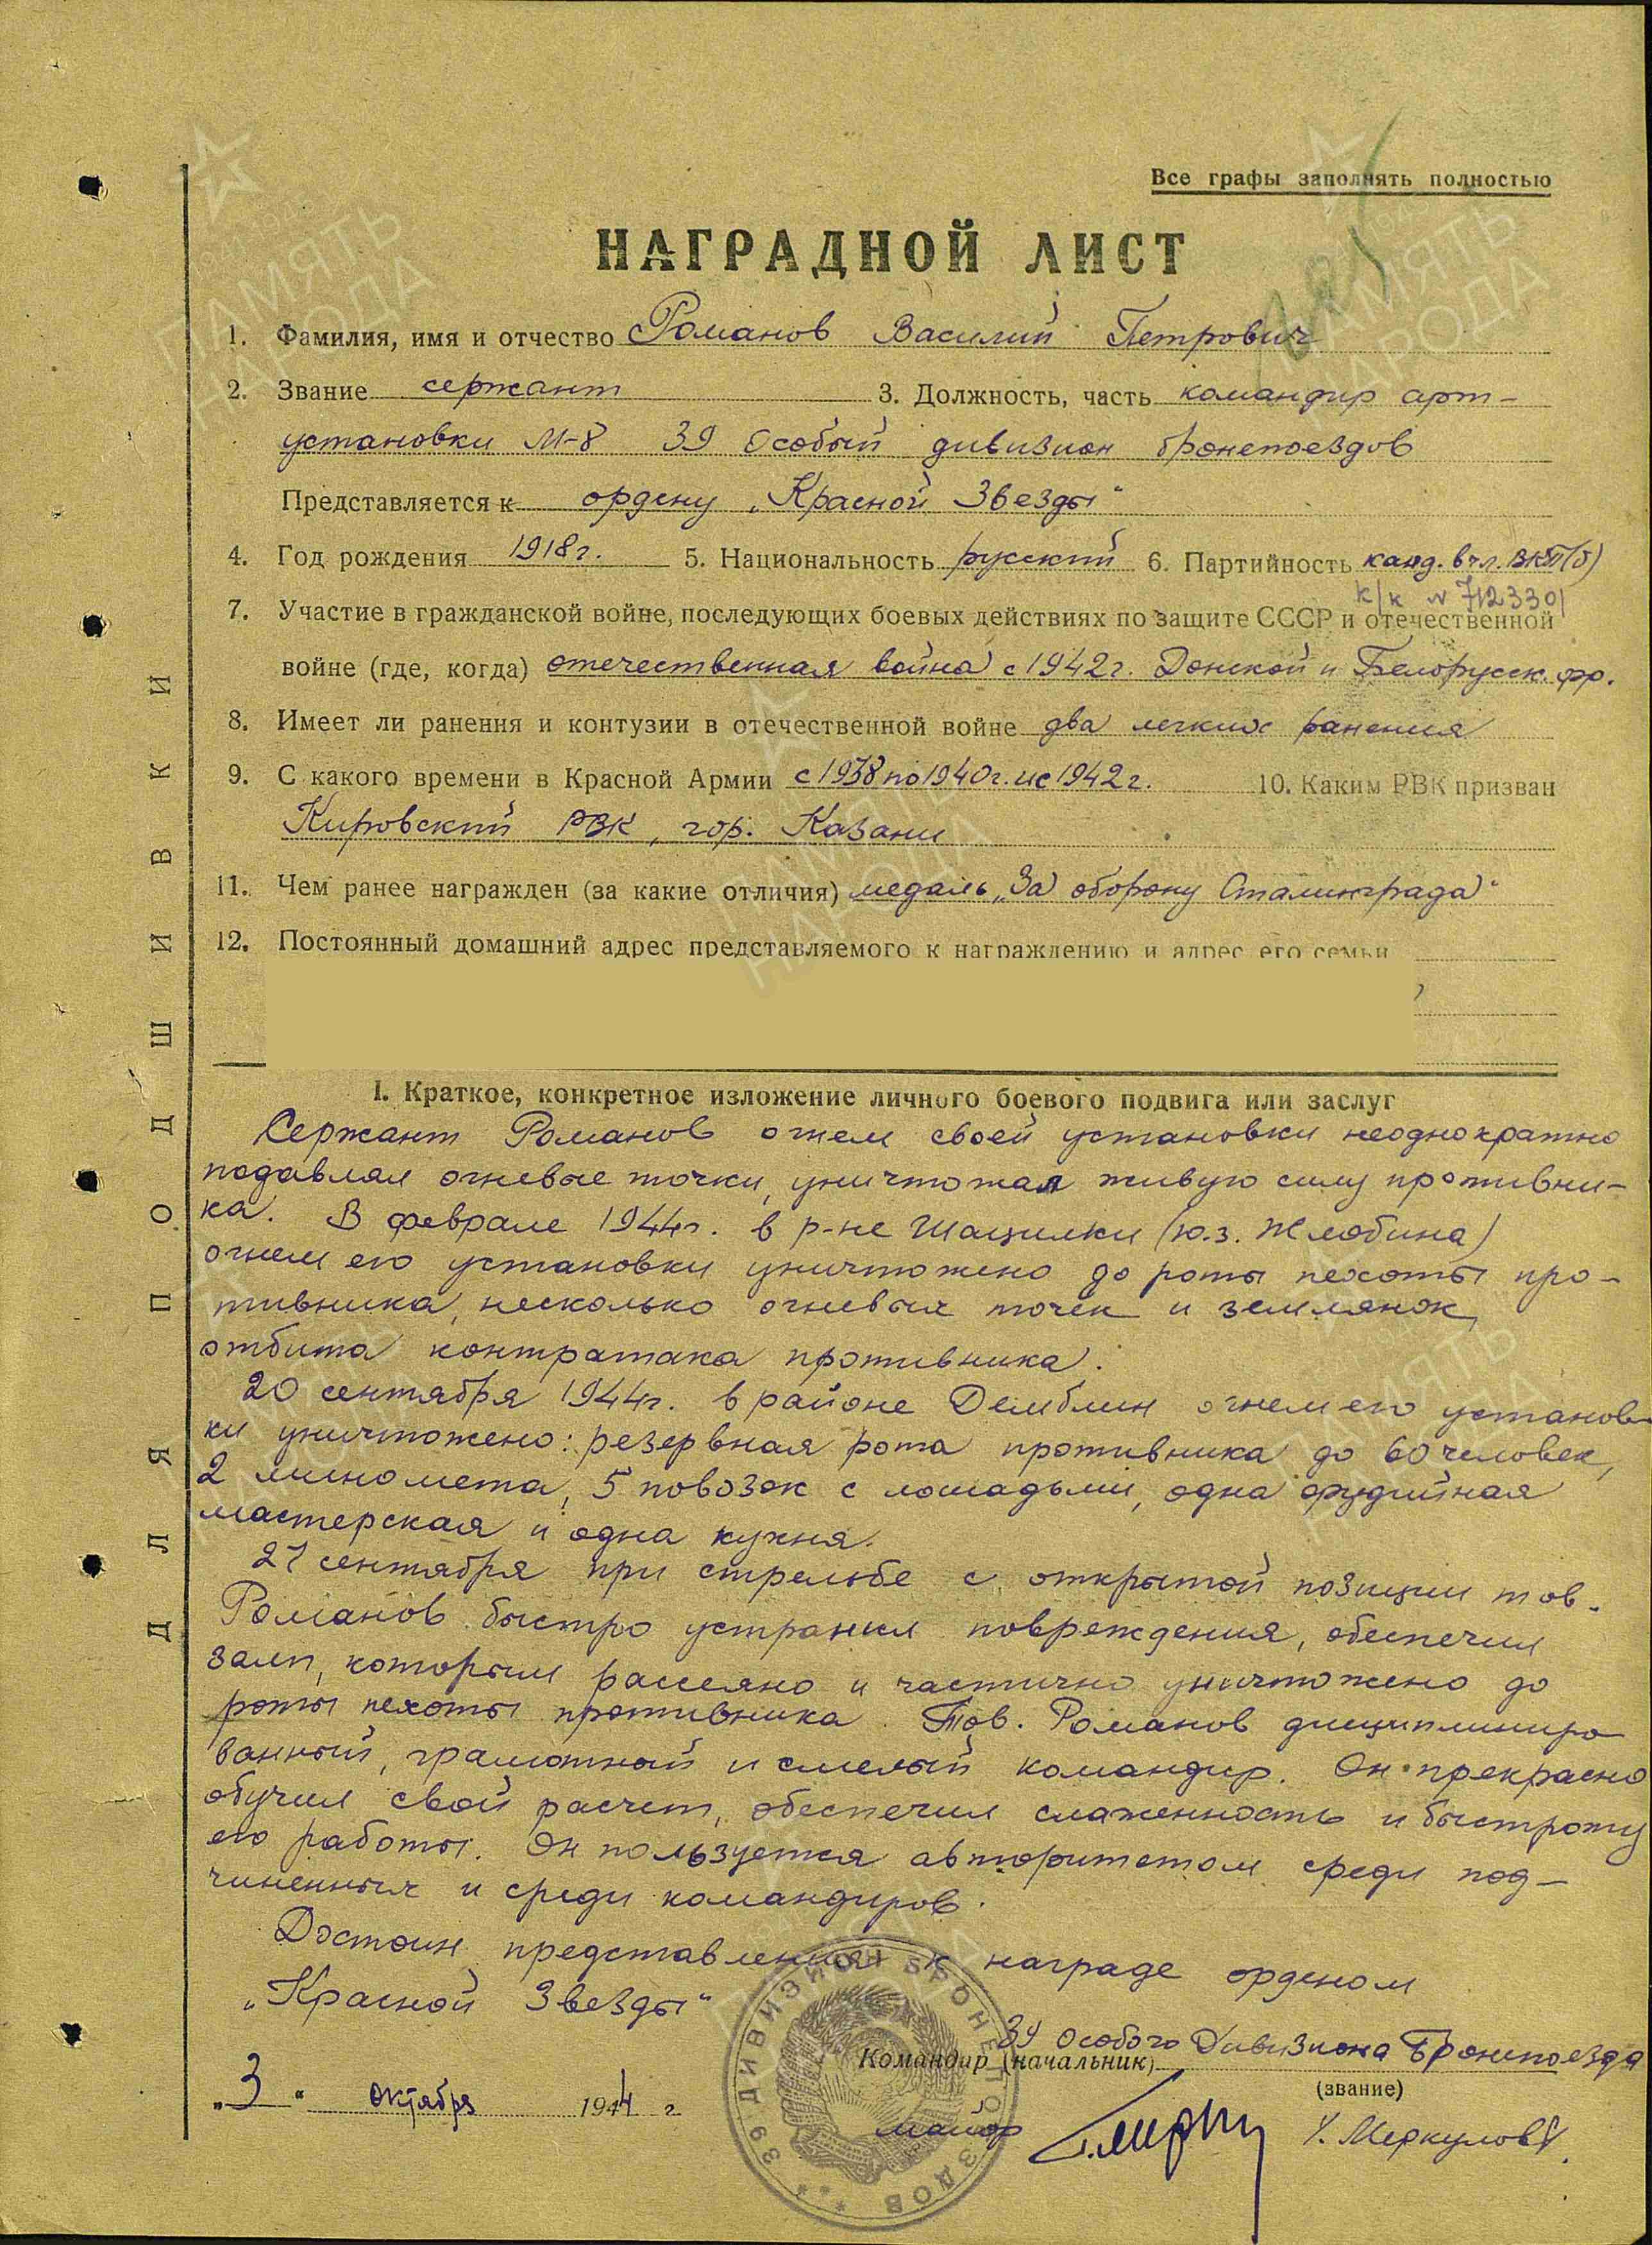 Все графы заполнять полностью
НАГРАДНОЙ ЛИСТ
1. Фамилия, имя и отчество Романов Василий Петрович
2. Звание сержант 3. Должность, часть командир арт-
установки М-8 39 Особый дивизион бронепоездов
Представляется к ордену „Красной Звезды"
4. Год рождения 1918г. 5. Национальность русский 6. Партийность канд. в чл. ВКП(б)
к/к № 7123301
7. Участие в гражданской войне, последующих боевых действиях по защите СССР и отечественной
войне (где, когда) отечественная война с 1942г. Донской и Белорусск. фр.
8. Имеет ли ранения и контузии в отечественной войне два легких ранения
9. С какого времени в Красной Армии с 1938 по 1940г. и с 1942г. 10. Каким РВК призван
Кировский РВК, гор. Казани
11. Чем ранее награжден (за какие отличия) медаль „За оборону Сталинграда"
12. Постоянный домашний адрес представляемого к награждению и адрес его семьи
I. Краткое, конкретное изложение личного боевого подвига или заслуг
Сержант Романов огнем своей установки неоднократно
подавлял огневые точки, уничтожал живую силу противни-
ка. В феврале 1944г. в р-не Шацилки (ю.з. Жлобина)
огнем его установки уничтожено до роты пехоты про-
тивника, несколько огневых точек и землянок,
отбита контратака противника.
20 сентября 1944г. в районе Демблин огнем его установ-
ки уничтожено: резервная рота противника до 60 человек,
2 миномета, 5 повозок с лошадьми, одна орудийная
мастерская и одна кухня.
27 сентября при стрельбе с открытой позиции тов.
Романов быстро устранил повреждения, обеспечил
залп, которым рассеяно и частично уничтожено до
роты пехоты противника. Тов. Романов дисциплиниро
ванный, грамотный и смелый командир. Он прекрасно
обучил свой расчет, обеспечил слаженность и быстроту
его работы. Он пользуется авторитетом среди под-
чиненных и среди командиров.
Достоин представления к награде орденом
„Красной Звезды"
39 Особого Дивизиона Бронепоезда
Командир (начальник)
(звание)
„3" октября 1944 г.
майор
/. Меркулов/.
39 ДИВИЗИОН БРОНЕПОЕЗДОВ
ДЛЯ ПОДШИВКИ
ПАМЯТЬ
НАРОДА
ПАМЯТЬ
НАРОДА
ПАМЯТЬ
НАРОДА
ПАМЯТЬ
НАРОДА
ПАМЯТЬ
НАРОДА
ПАМЯТЬ
НАРОДА